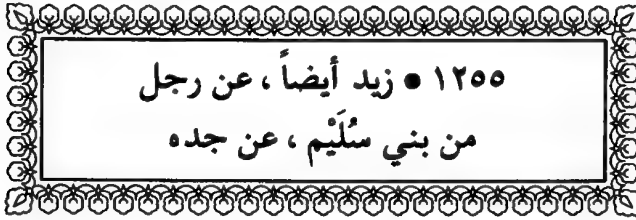 ١٢٥٥ • زيد أيضاً ، عن رجل
من بني سُلَيْم ، عن جده